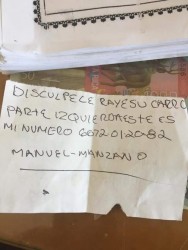 DISCULPELE RAYESU CARRO
PARTE IZQUIERDAESTE ES
MI NUMERO 6672012082
MANUEL-MANZANO